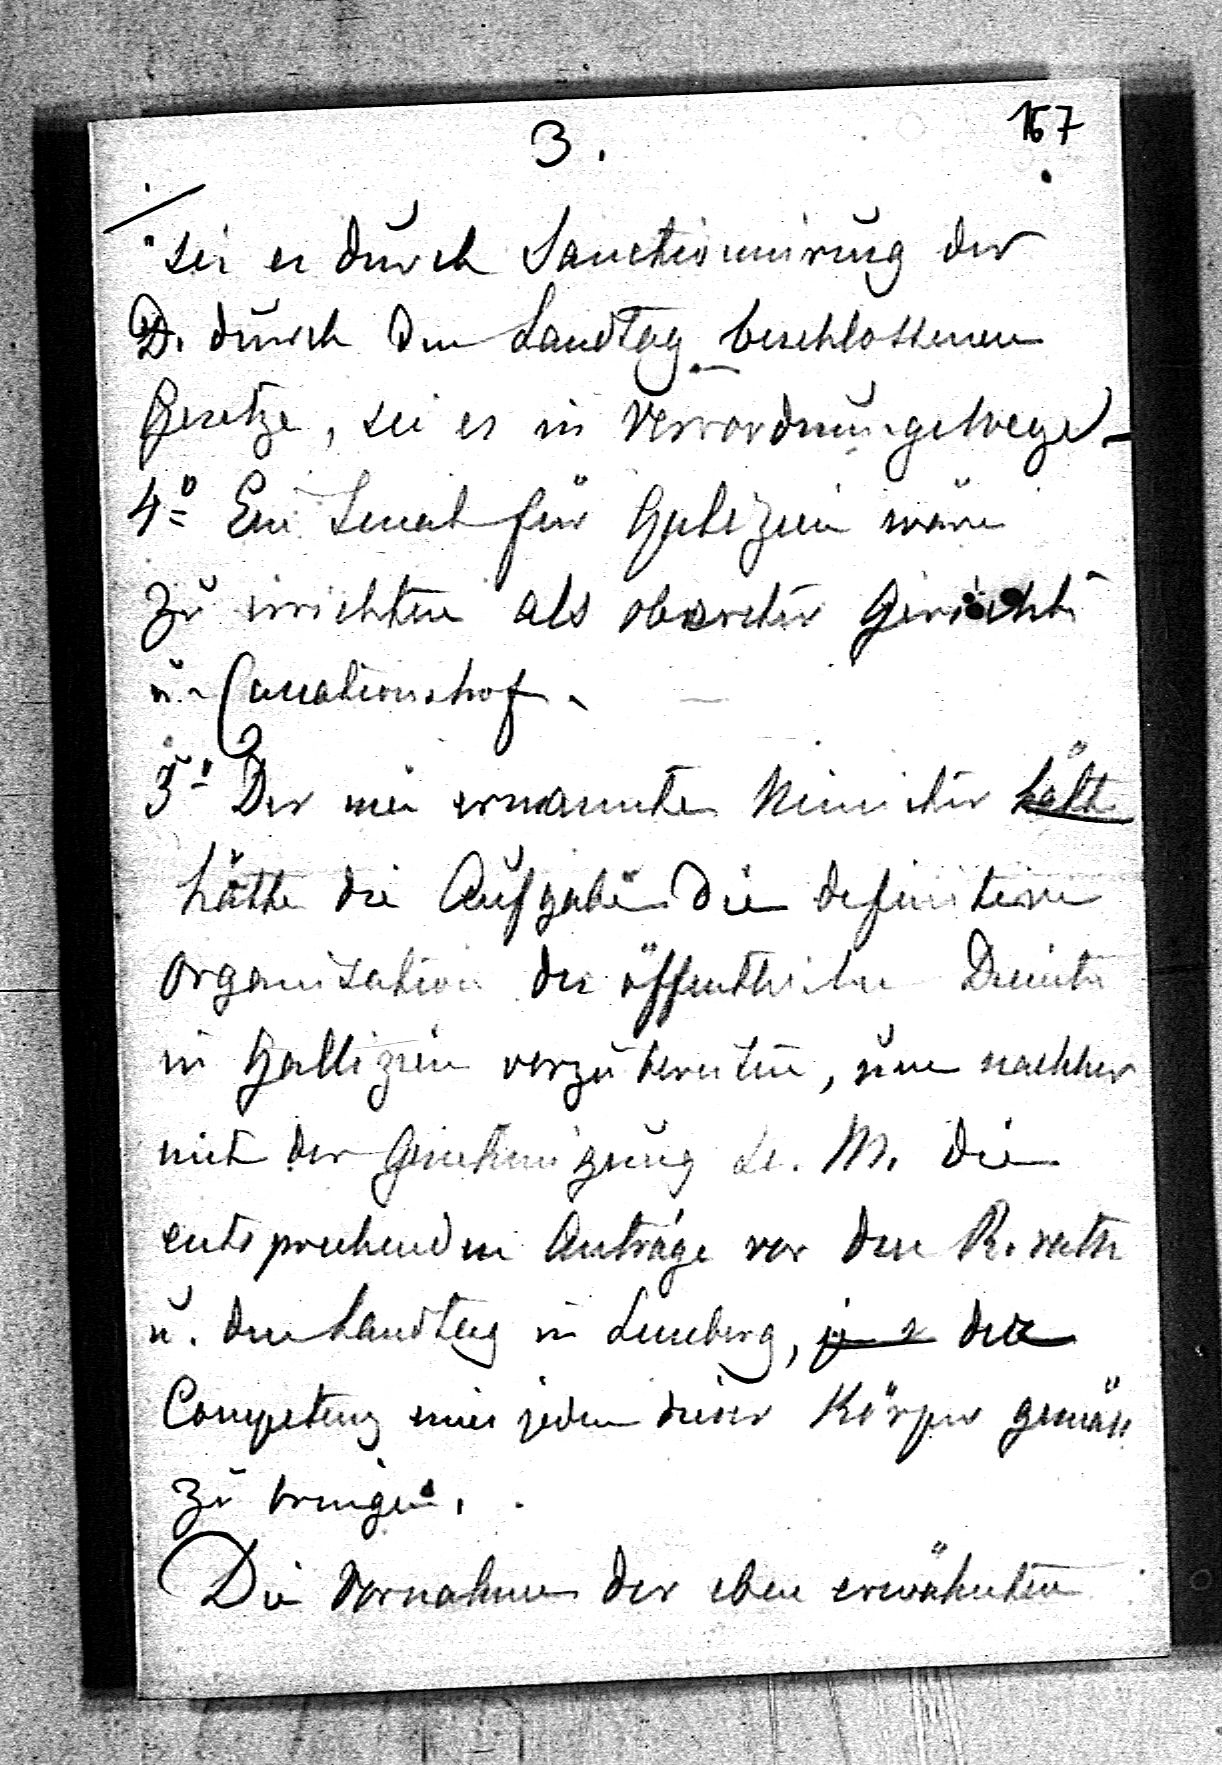 3.
167
sei es durch Sanctionnirung der
D. durch den Landtag beschlossenen
Gesetze, sei es in Verordnungswege
4° Ein Senat für Galizien wäre
zu errichten als oberster Gerichts
u. Cassationshof.
5° Der neu ernannte Minister hätte
hätte die Aufgabe die definitive
Organisation der öffentlichen Dienste
in Gallizien vorzubereiten, um nachher
mit der Genehmigung Sr. M. die
entsprechenden Anträge vor den R. rath
u. den Landtag in Lemberg, der
Competenz eines jeden dieser Körper gemäss
zu bringen.
Die Vornahme der eben erwähnten